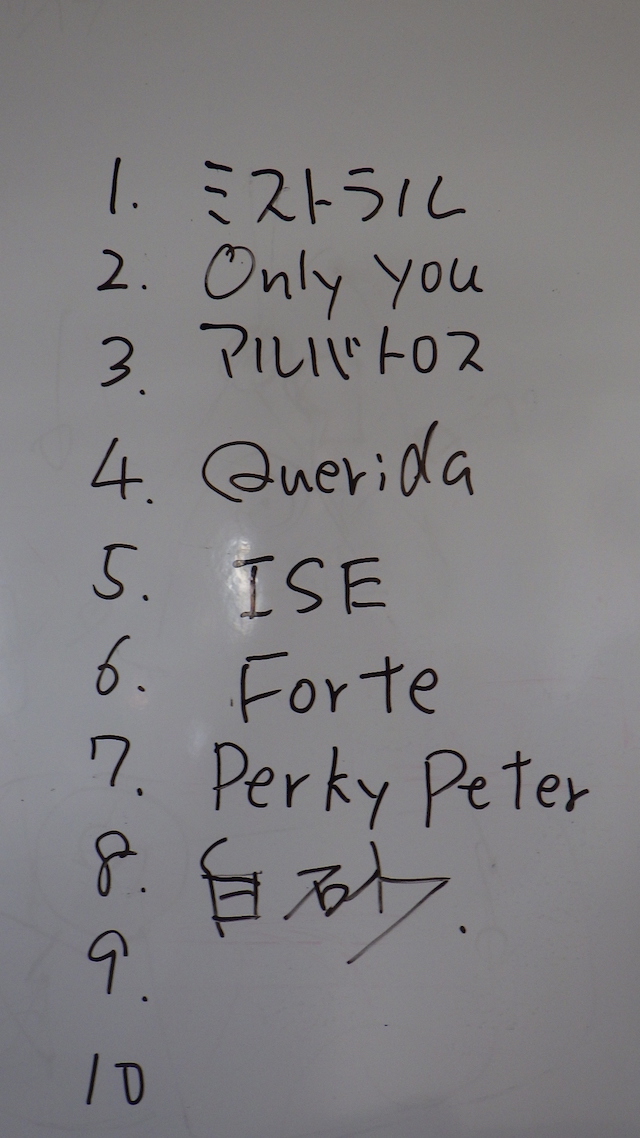 1. ミストラル
2. Only you
3. アルバトロス
4. Querida
5. ISE
6. Forte
7. Perky Peter
8. 白砂.
9.
10